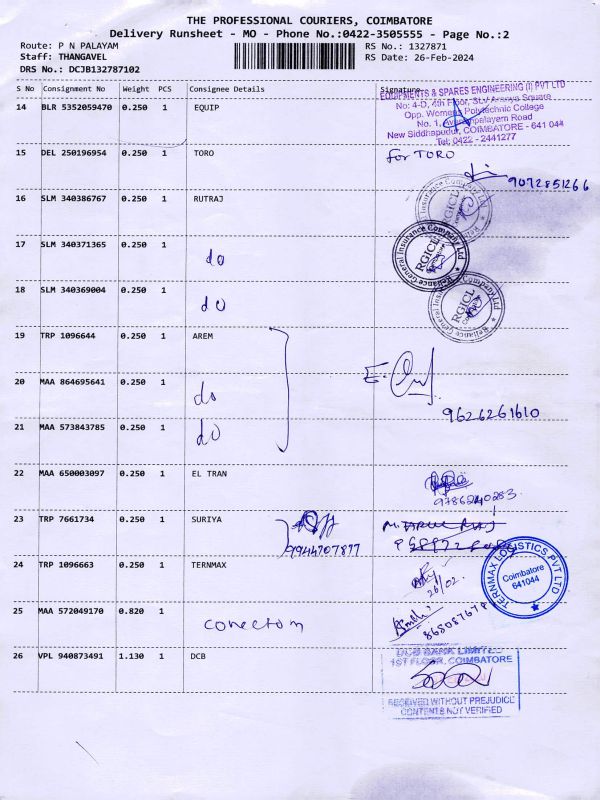 THE PROFESSIONAL COURIERS, COIMBATORE
Delivery Runsheet - MO - Phone No.:0422-3505555 - Page No.:2
Route: P N PALAYAM
RS No.: 1327871
Staff: THANGAVEL
RS Date: 26-Feb-2024
DRS No.: DCJB132787102
S No Consignment No Weight PCS Consignee Details Signature
EQUIPMENTS & SPARES ENGINEERING (I) PVT LTD
No: 4-D, 4th Floor, SLV Ananya Square
Opp. Womens Polytechnic College
No. 1, Avarampalayam Road
New Siddhapudur, COIMBATORE - 641 044
Tel: 0422 - 2441277
14 BLR 5352059470 0.250 1 EQUIP
15 DEL 250196954 0.250 1 TORO
for TORO
9072851266
16 SLM 340386767 0.250 1 RUTRAJ
17 SLM 340371365 0.250 1 do
Reliance General Insurance Company Ltd
RGICL
18 SLM 340369004 0.250 1 do
Reliance General Insurance Company Ltd
RGICL
19 TRP 1096644 0.250 1 AREM
20 MAA 864695641 0.250 1 do
9626261610
21 MAA 573843785 0.250 1 do
22 MAA 650003097 0.250 1 EL TRAN
9786240283
23 TRP 7661734 0.250 1 SURIYA
9944707877
24 TRP 1096663 0.250 1 TERNMAX
26/02
TERNMAX LOGISTICS PVT LTD
Coimbatore
641044
25 MAA 572049170 0.820 1 conectom
26 VPL 940873491 1.130 1 DCB
DCB BANK LIMITED
1ST FLOOR, COIMBATORE
RECEIVED WITHOUT PREJUDICE
CONTENTS NOT VERIFIED